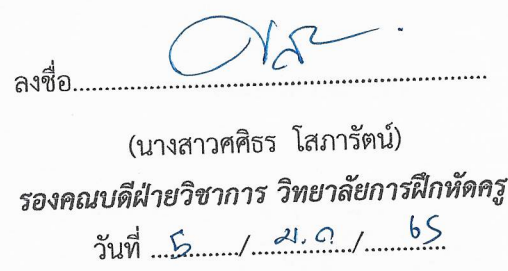 ลงชื่อ........................................................
(นางสาวศศิธร โสภารัตน์)
รองคณบดีฝ่ายวิชาการ วิทยาลัยการฝึกหัดครู
วันที่ ...5........./...ม.ค..../.......65